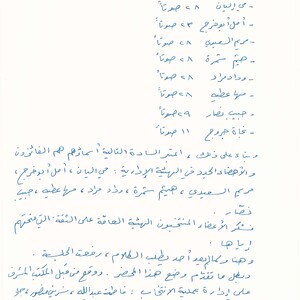 - مي اليان ٢٨ صوتاً
- أمل أبو فرج ٢٣ صوتاً
- مريم السعيدي ٢٨ صوتاً
- هيثم سمرة ٢٨ صوتاً
- وداد مراد ٢٨ صوتاً
- مها عطيه ٢٨ صوتاً
- حبيب نصّار ٢٩ صوتاً
- نجاة جروج ١١ صوتاً
وبناء على ذلك، اعتبر السادة التالية أسماؤهم هم الفائزون
والأعضاء الجدد في الهيئة الإدارية: مي اليان، أمل أبو فرج،
مريم السعيدي، هيثم سمرة، وداد مراد، مها عطيه، حبيب
نصّار.
فشكر الأعضاء المنتخبون الهيئة العامّة على الثقة التي منحتهم
إياها.
وهنا، وكما لم يعد أحد يطلب الكلام، رفعت الجلسة.
وبكل ما تقدّم وضع هذا المحضر. ووقّع من قبل المكتب المشرف
على إدارة عملية الانتخاب: فاطمة عبدالله،